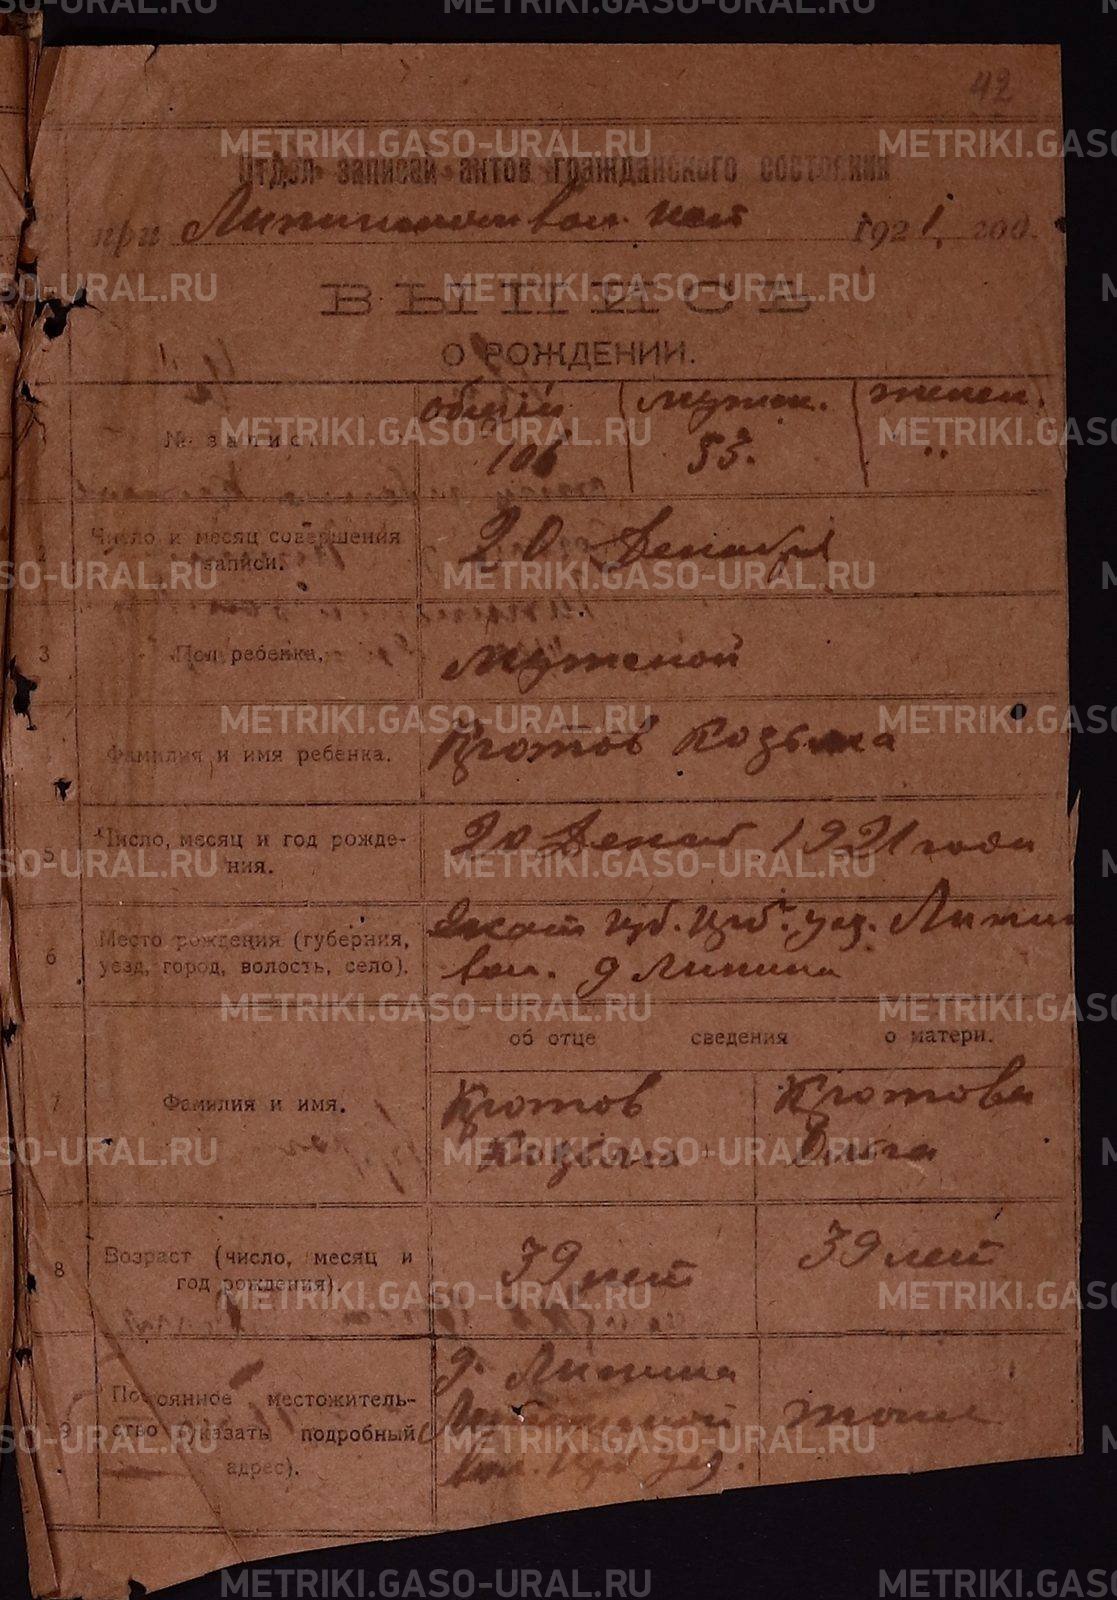 42
Отдел записей актов гражданского состояния
при вол. 1921 год.
ВЫПИСЬ
О РОЖДЕНИИ.
№ записи. общий мужск. женск.
106 53. "
Число и месяц совершения 20 Декабря
записи.
3 Пол ребенка. Мужской
Фамилия и имя ребенка. Кротов Козьма
5 Число, месяц и год рожде- 20 Декаб 1921 года
ния.
6 Место рождения (губерния, Екат губ. уез.
уезд, город, волость, село). вол. д Липина
об отце сведения о матери.
7 Фамилия и имя. Кротов Кротова
8 Возраст (число, месяц и 39 лет 39 лет
год рождения).
д. Липина
9 Постоянное местожитель-
ство (указать подробный тоже
адрес). вол. уез.
METRIKI.GASO-URAL.RU